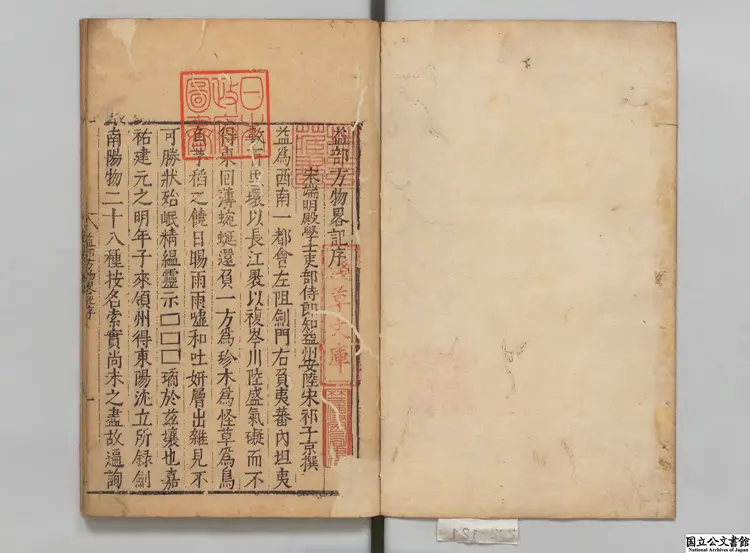 益部方物畧記序
宋端明殿學士吏部侍郎知益州安陸宋祁子京撰
益爲西南一都會左阻劍門右負夷蕃內坦夷
數百里環以長江畟以複岑川陸盛氣礙而不
得東回薄蜿蜒還負一方爲珍木爲怪草爲鳥
魚芋稻之饒日暘雨雨噓和吐妍層出雜見不
可勝狀殆岷精緼靈示□□□㻞於兹壤也嘉
祐建元之明年子來領州得東陽沈立所录劍
南陽物二十八種按名索實尚未之盡故遍詢
益部方物畧記序
一
日本政府圖書
淺草文庫
国立公文書館
National Archives of Japan